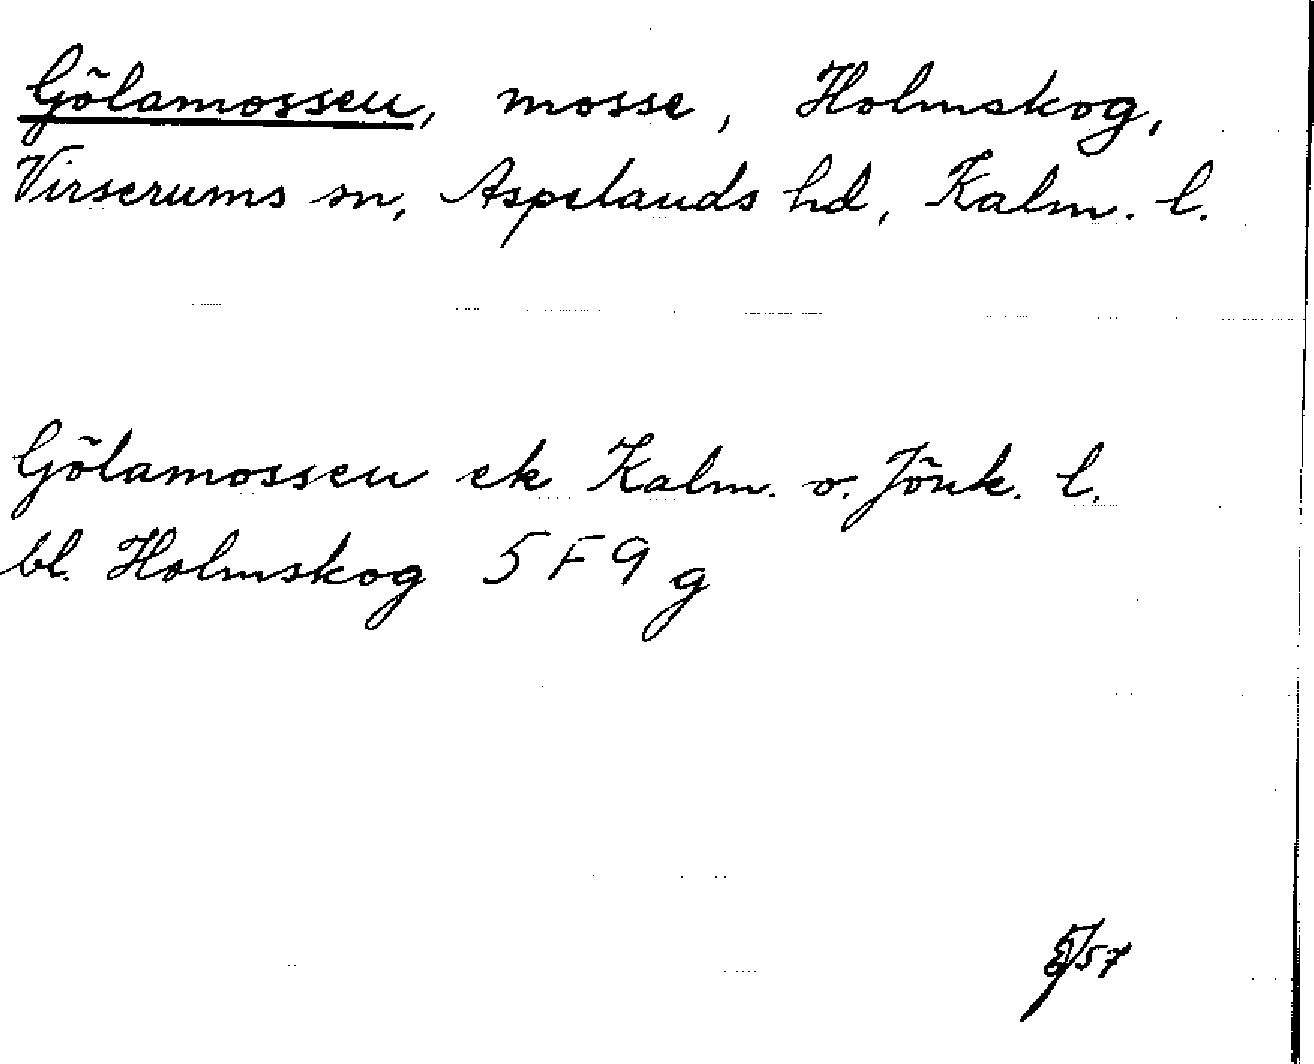 Gölamossen, mosse, Holmskog,
Virserums sn, Aspelands hd, Kalm. l.
Gölamossen ek Kalm. o. Jönk. l.
bl. Holmskog 5 F 9 g
/57